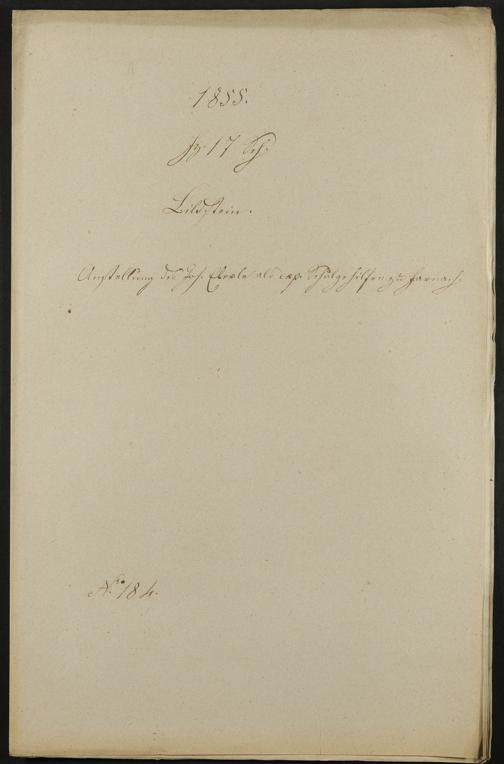 1855.
17 Sch.
Bildstein.
Anstellung des Joh. Eberle als exp. Schulgehilfen zu Farnach.
No. 184.